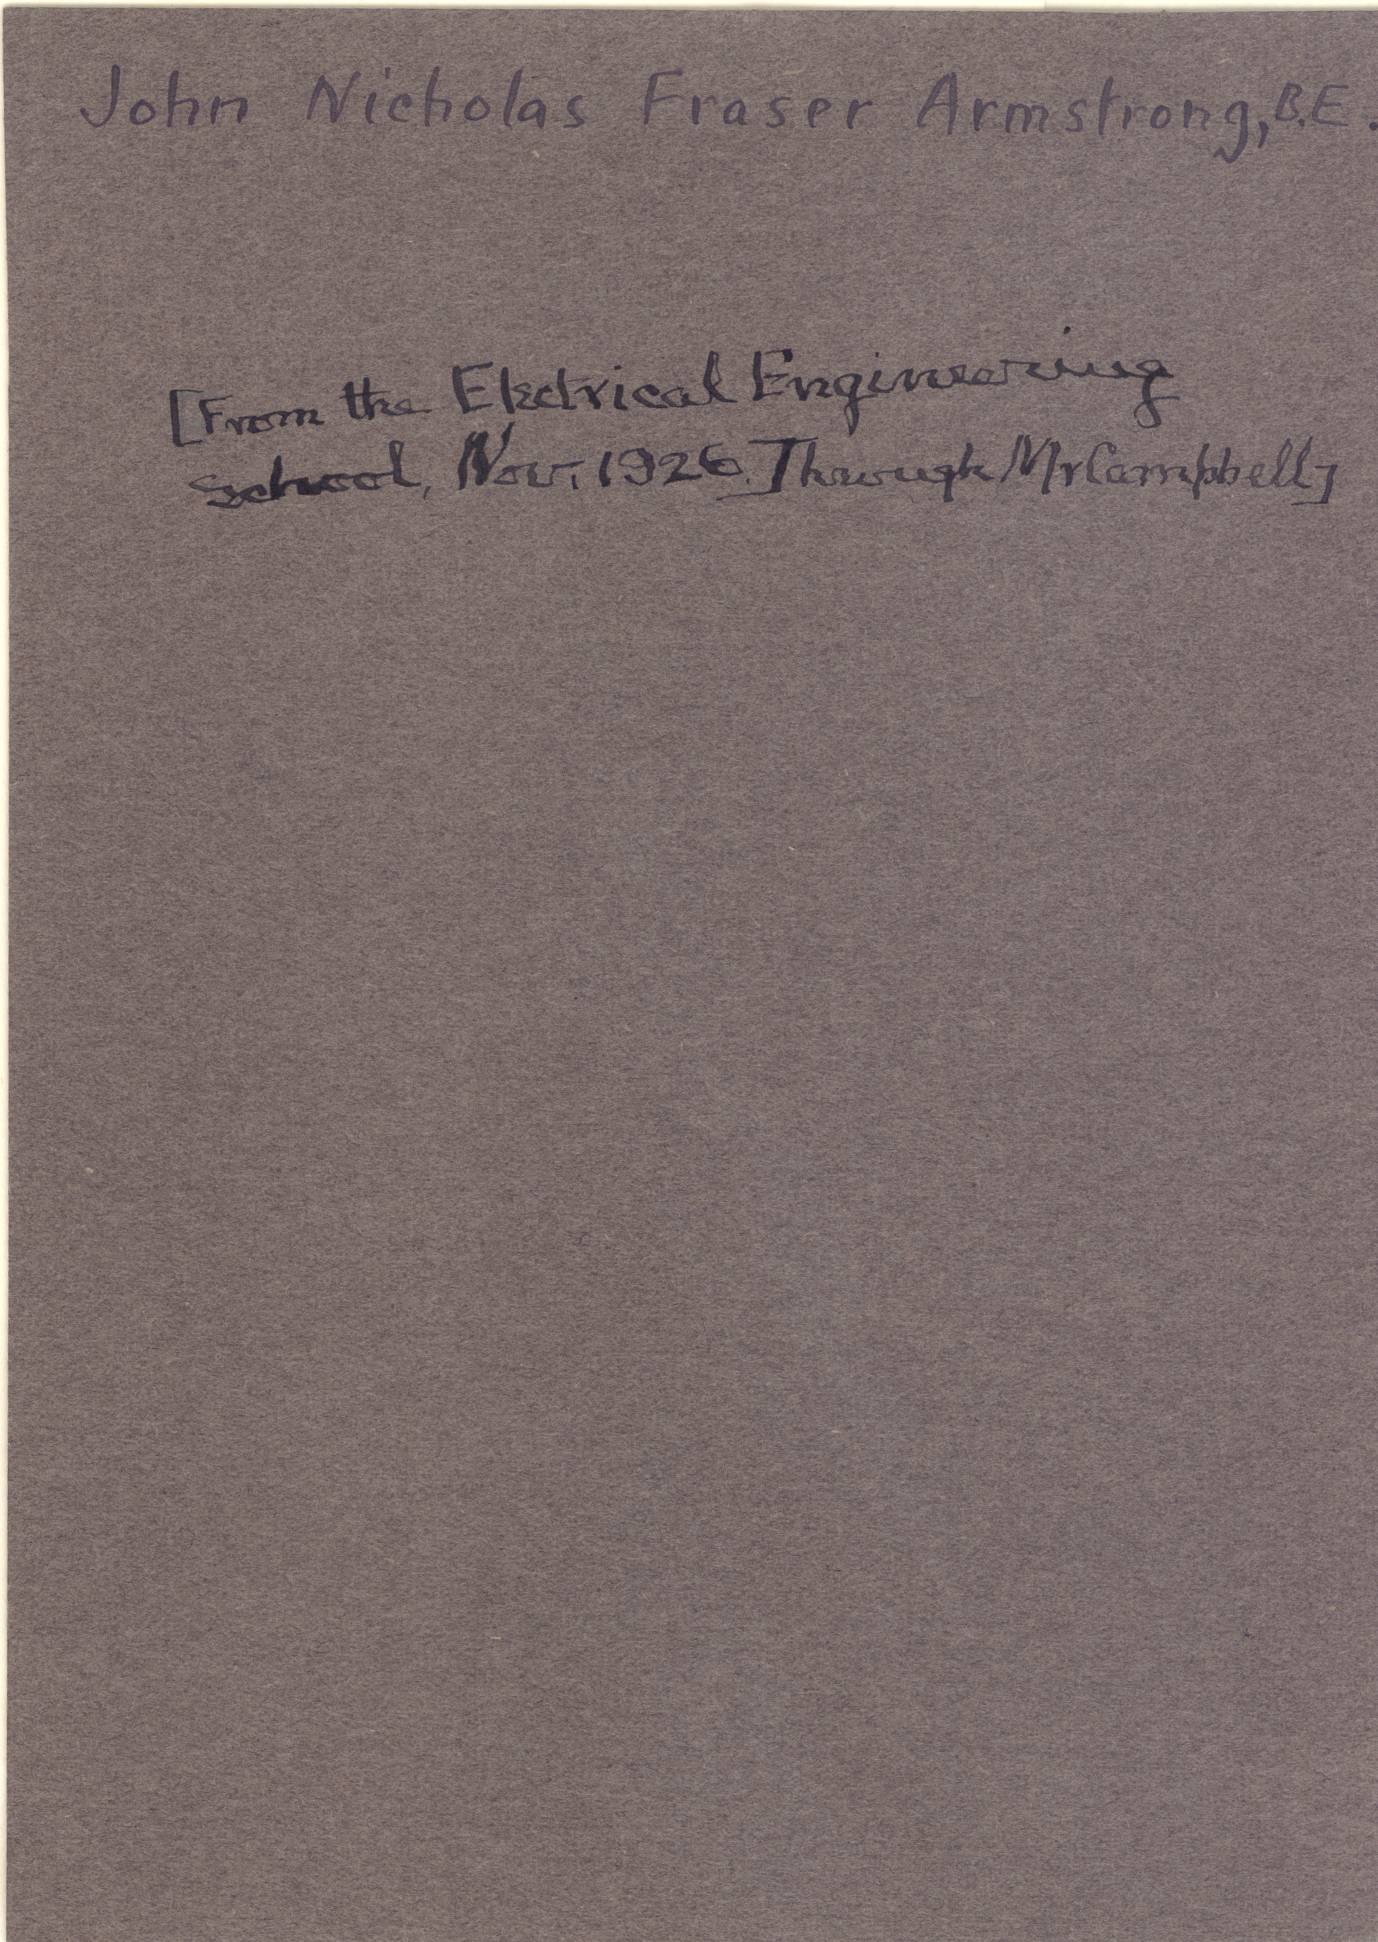 John Nicholas Fraser Armstrong, B.E.
[From the Electrical Engineering
School, Nov. 1926. Through Mr Campbell]